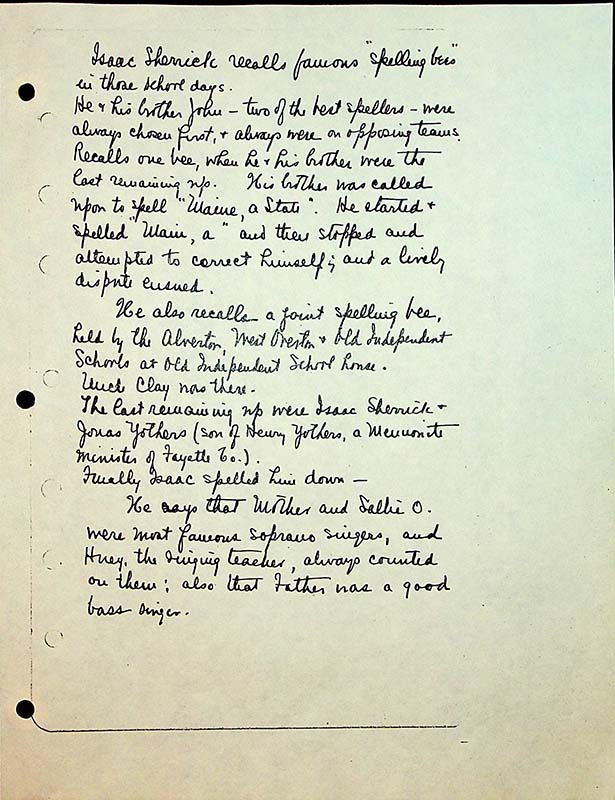 Isaac Sherrick recalls famous "spelling bees"
in those school days.
He & his brother John - two of the best spellers - were
always chosen first, & always were on opposing teams.
Recalls one bee, when he & his brother were the
last remaining up. His brother was called
upon to spell "Maine, a State". He started &
spelled "Main, a" and then stopped and
attempted to correct himself; and a lively
dispute ensued.
He also recalls a joint spelling bee,
held by the Alverton, West Overton & Old Independent
Schools at Old Independent School house.
Uncle Clay was there.
The last remaining up were Isaac Sherrick &
Jonas Yothers (son of Henry Yothers, a Mennonite
minister of Fayette Co.).
Finally Isaac spelled him down -
He says that Mother and Sallie O.
were most famous soprano singers, and
Huey, the singing teacher, always counted
on them; also that Father was a good
bass singer.